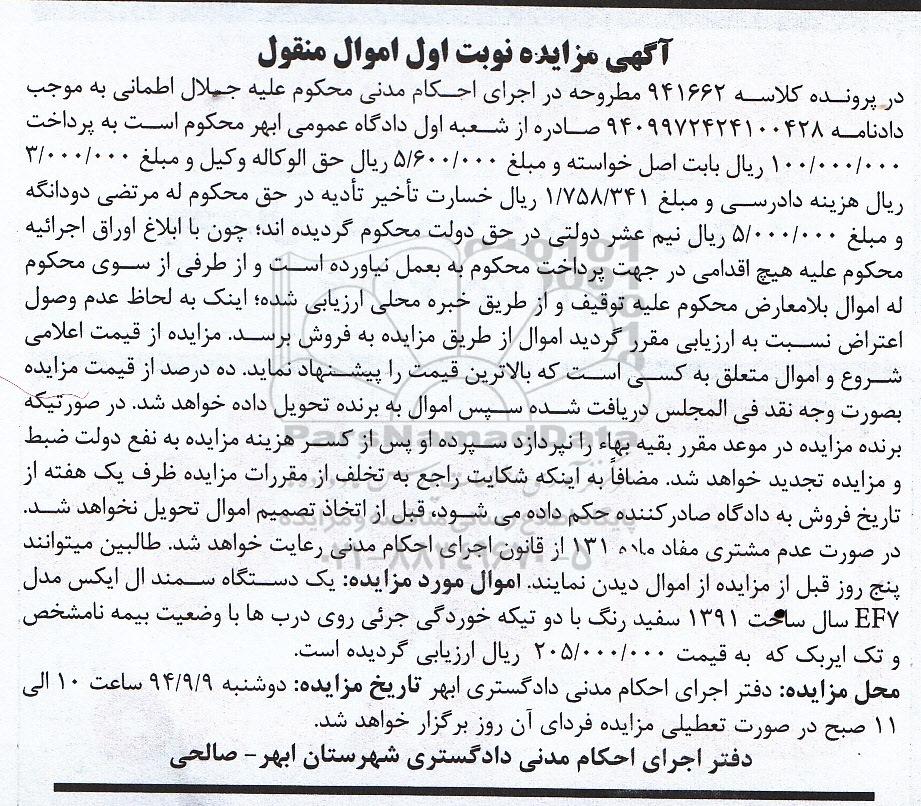 آگهی مزایده نوبت اول اموال منقول
در پرونده کلاسه ۹۴۱۶۶۲ مطروحه در اجرای احکام مدنی محکوم علیه جلال اطمانی به موجب
دادنامه ۹۴۰۹۹۷۲۴۲۴۱۰۰۴۲۸ صادره از شعبه اول دادگاه عمومی ابهر محکوم است به پرداخت
۱۰۰/۰۰۰/۰۰۰ ریال بابت اصل خواسته و مبلغ ۵/۶۰۰/۰۰۰ ریال حق الوکاله وکیل و مبلغ ۳/۰۰۰/۰۰۰
ریال هزینه دادرسی و مبلغ ۱/۷۵۸/۳۴۱ ریال خسارت تأخیر تأدیه در حق محکوم له مرتضی دودانگه
و مبلغ ۵/۰۰۰/۰۰۰ ریال نیم عشر دولتی در حق دولت محکوم گردیده اند؛ چون با ابلاغ اوراق اجرائیه
محکوم علیه هیچ اقدامی در جهت پرداخت محکوم به بعمل نیاورده است و از طرفی از سوی محکوم
له اموال بلامعارض محکوم علیه توقیف و از طریق خبره محلی ارزیابی شده؛ اینک به لحاظ عدم وصول
اعتراض نسبت به ارزیابی مقرر گردید اموال از طریق مزایده به فروش برسد. مزایده از قیمت اعلامی
شروع و اموال متعلق به کسی است که بالاترین قیمت را پیشنهاد نماید. ده درصد از قیمت مزایده
بصورت وجه نقد فی المجلس دریافت شده سپس اموال به برنده تحویل داده خواهد شد. در صورتیکه
برنده مزایده در موعد مقرر بقیه بهاء را نپردازد سپرده او پس از کسر هزینه مزایده به نفع دولت ضبط
و مزایده تجدید خواهد شد. مضافاً به آینکه شکایت راجع به تخلف از مقررات مزایده ظرف یک هفته از
تاریخ فروش به دادگاه صادرکننده حکم داده می شود، قبل از اتخاذ تصمیم اموال تحویل نخواهد شد.
در صورت عدم مشتری مفاد ماده ۱۳۱ از قانون اجرای احکام مدنی رعایت خواهد شد. طالبین میتوانند
پنج روز قبل از مزایده از اموال دیدن نمایند. اموال مورد مزایده: یک دستگاه سمند ال ایکس مدل
EF۷ سال ساخت ۱۳۹۱ سفید رنگ با دو تیکه خوردگی جرئی روی درب ها با وضعیت بیمه نامشخص
و تک ایربک که به قیمت ۲۰۵/۰۰۰/۰۰۰ ریال ارزیابی گردیده است.
محل مزایده: دفتر اجرای احکام مدنی دادگستری ابهر تاریخ مزایده: دوشنبه ۹۴/۹/۹ ساعت ۱۰ الی
۱۱ صبح در صورت تعطیلی مزایده فردای آن روز برگزار خواهد شد.
دفتر اجرای احکام مدنی دادگستری شهرستان ابهر- صالحی
ParsNamadData